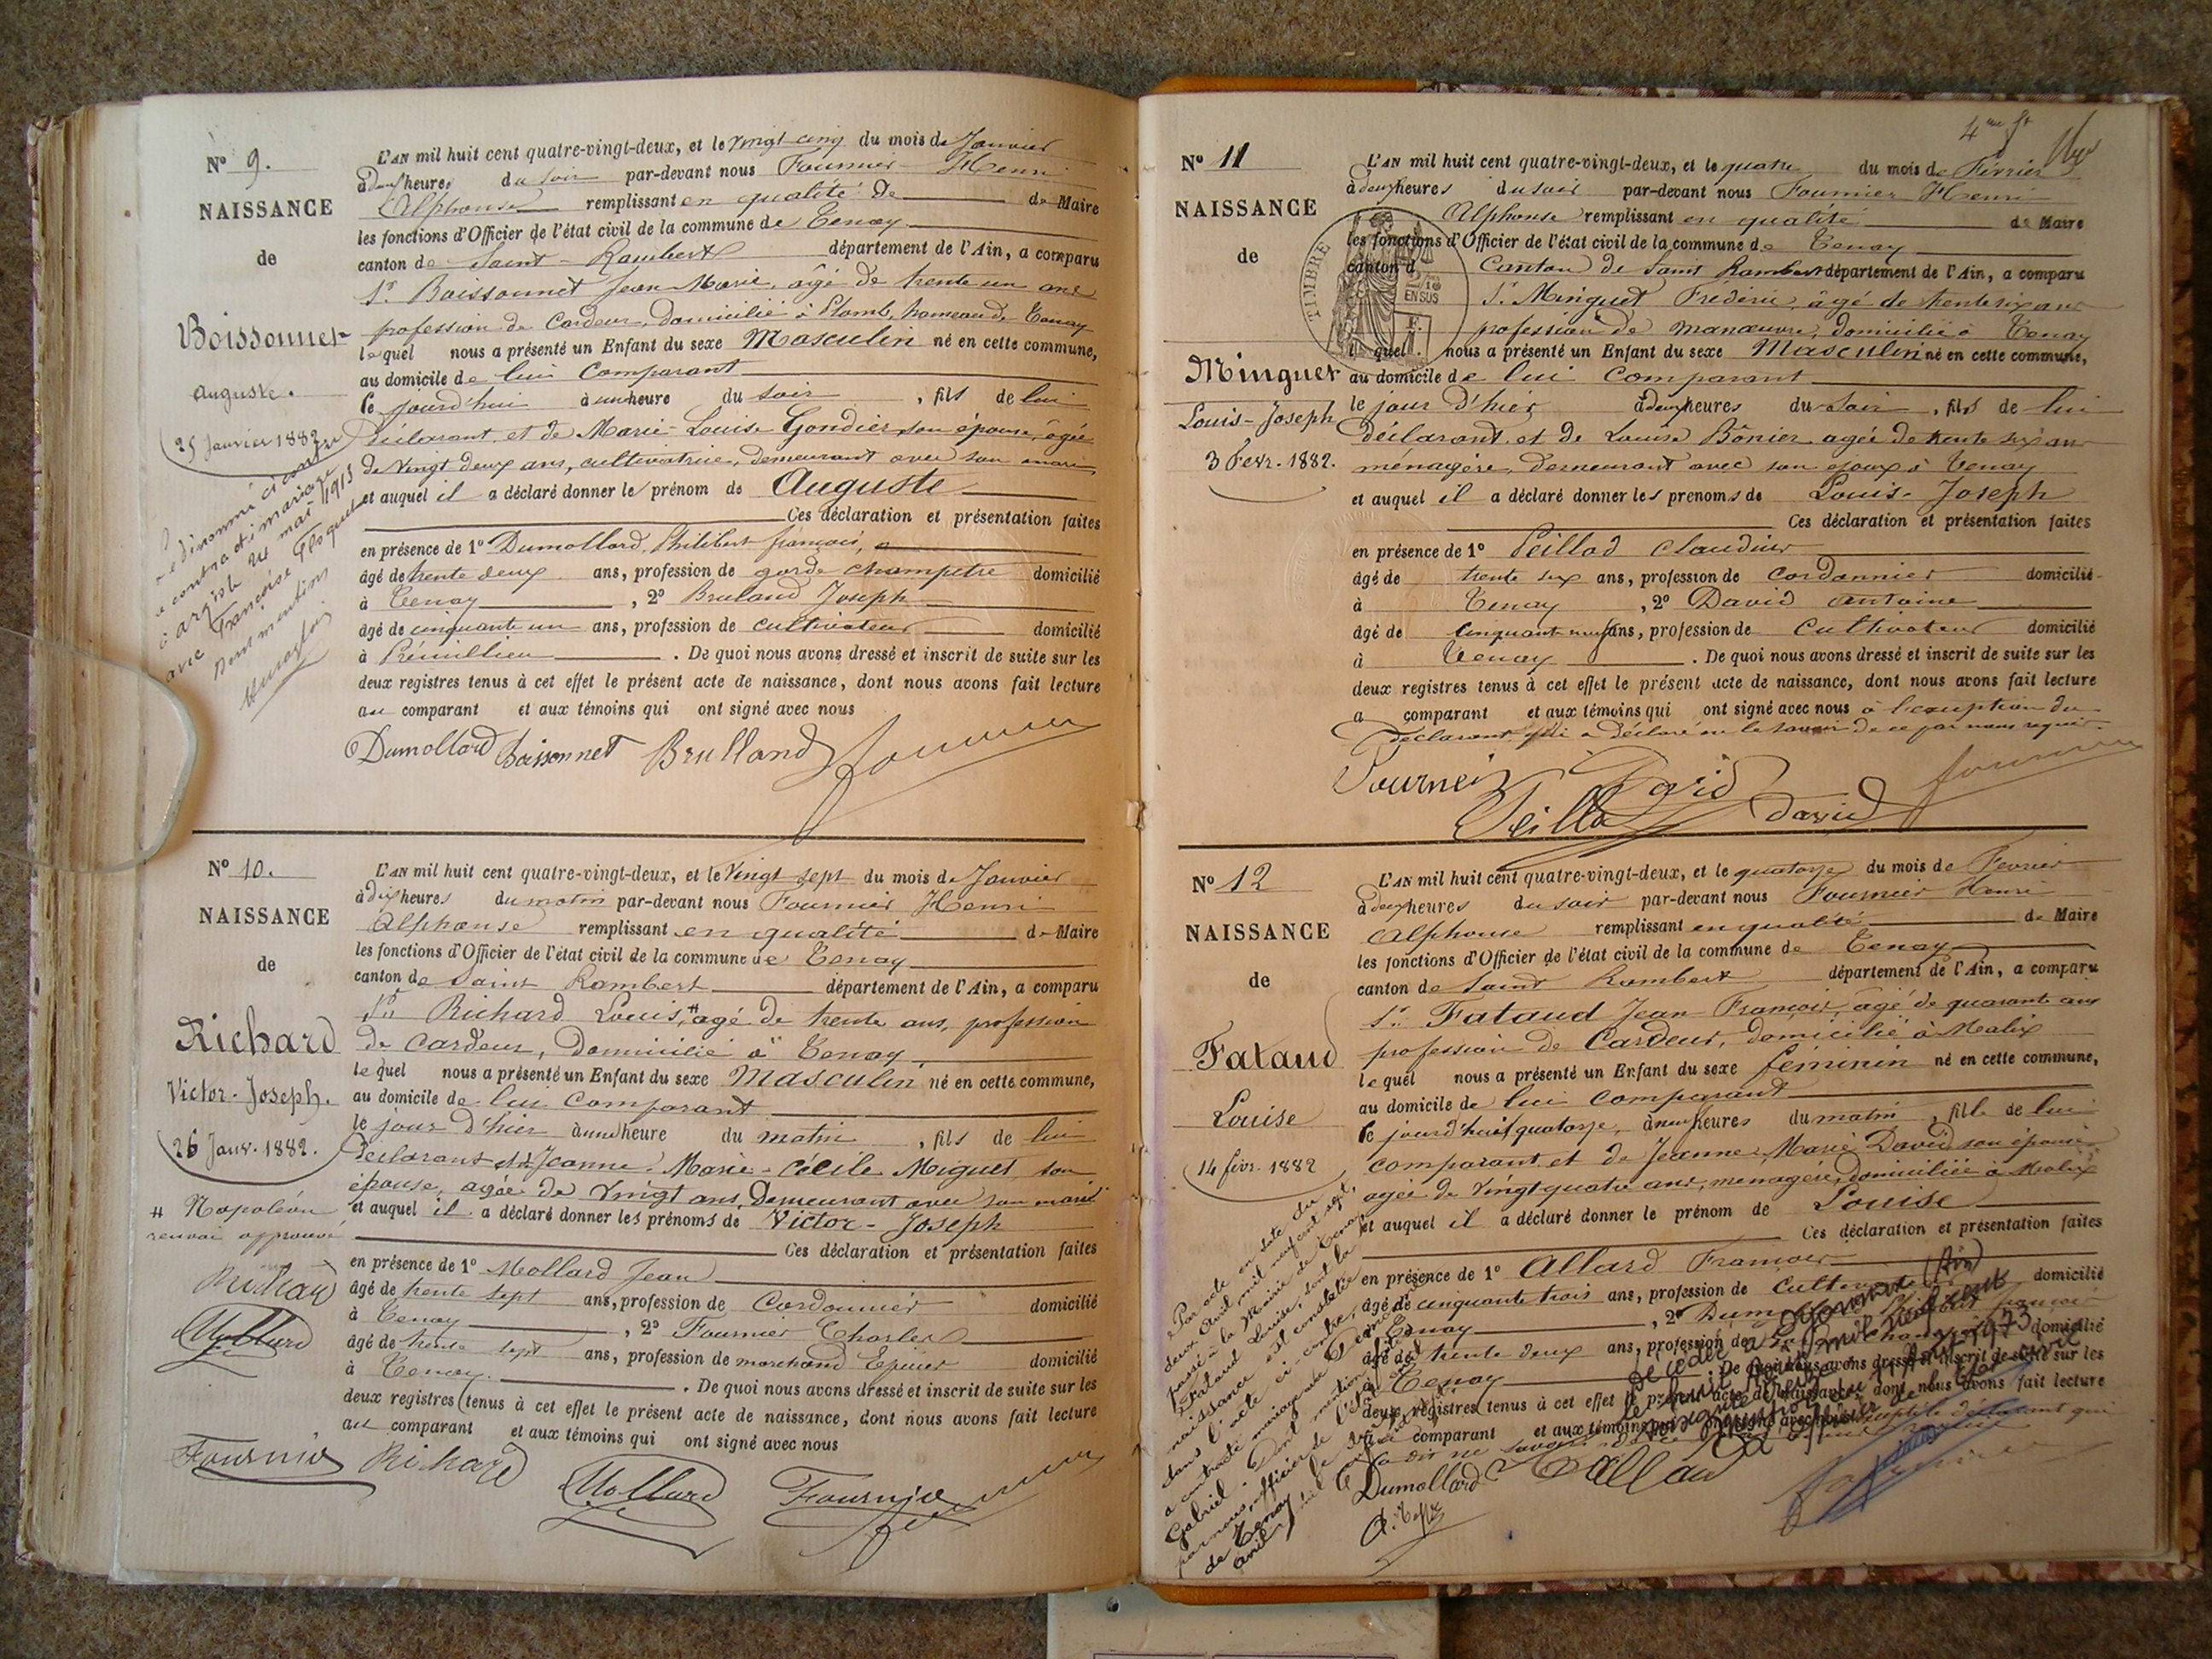 N° 9.
NAISSANCE
de
Boissonnet
Auguste.
25 Janvier 1882
L'AN mil huit cent quatre-vingt-deux, et le Vingt cinq du mois de Janvier
à deux heures du soir par-devant nous Fournier Henri
Alphonse remplissant en qualité de de Maire
les fonctions d'Officier de l'état civil de la commune de Tenay
canton de Saint-Rambert département de l'Ain, a comparu
Sr Boissonnet Jean Marie, âgé de trente un ans
profession de Cardeur, domicilié à Plomb, hameau de Tenay
lequel nous a présenté un Enfant du sexe Masculin né en cette commune,
au domicile de lui Comparant
ce jourd'hui à une heure du soir, fils de lui
déclarant, et de Marie-Louise Gondier son épouse, âgée
de Vingt deux ans, cultivatrice, demeurant avec son mari
et auquel il a déclaré donner le prénom de Auguste
Ces déclaration et présentation faites
en présence de 1° Dumollard, Philibert françois,
âgé de trente deux ans, profession de garde champêtre domicilié
à Tenay, 2° Bruland Joseph
âgé de cinquante un ans, profession de cultivateur domicilié
à Prémillieu. De quoi nous avons dressé et inscrit de suite sur les
deux registres tenus à cet effet le présent acte de naissance, dont nous avons fait lecture
au comparant et aux témoins qui ont signé avec nous
Dumollard Boissonnet Brulland
Le dénommé ci contre
a contracté mariage
à argis le 24 mai 1913
avec Françoise
Dont mention
N° 10.
NAISSANCE
de
Richard
Victor-Joseph.
26 Janv. 1882.
# Napoléon
renvoi approuvé
Richard
Mollard
L'AN mil huit cent quatre-vingt-deux, et le Vingt sept du mois de Janvier
à dix heures du matin par-devant nous Fournier Henri
Alphonse remplissant en qualité de Maire
les fonctions d'Officier de l'état civil de la commune de Tenay
canton de Saint Rambert département de l'Ain, a comparu
Sr Richard Louis,# âgé de trente ans, profession
de Cardeur, domicilié à Tenay
lequel nous a présenté un Enfant du sexe Masculin né en cette commune,
au domicile de lui Comparant
le jour d'hier à une heure du matin, fils de lui
déclarant et de Jeanne-Marie-Cécile Miguet, son
épouse, agée de Vingt ans, Demeurant avec son mari
et auquel il a déclaré donner les prénoms de Victor-Joseph
Ces déclaration et présentation faites
en présence de 1° Mollard Jean
âgé de trente sept ans, profession de Cordonnier domicilié
à Tenay, 2° Fournier Charles
âgé de trente sept ans, profession de marchand Epicier domicilié
à Tenay. De quoi nous avons dressé et inscrit de suite sur les
deux registres tenus à cet effet le présent acte de naissance, dont nous avons fait lecture
au comparant et aux témoins qui ont signé avec nous
Fournier Richard Mollard Fournier
4me ft
N° 11
NAISSANCE
de
Minguet
Louis-Joseph
3 Fevr. 1882.
TIMBRE
L'AN mil huit cent quatre-vingt-deux, et le quatre du mois de Février
à deux heures du soir par-devant nous Fournier Henri
Alphonse remplissant en qualité de Maire
les fonctions d'Officier de l'état civil de la commune de Tenay
canton d Canton de Saint Rambert département de l'Ain, a comparu
Sr Minguet Fréderic, âgé de trente six ans
profession de manœuvre, domicilié à Tenay
l quel nous a présenté un Enfant du sexe Masculin né en cette commune,
au domicile de lui Comparant
le jour d'hier à deux heures du soir, fils de lui
déclarant, et de Louise Bônier agée de trente six ans
ménagère, demeurant avec son époux à Tenay
et auquel il a déclaré donner les prénoms de Louis-Joseph
Ces déclaration et présentation faites
en présence de 1° Peillod Claudius
âgé de trente six ans, profession de Cordonnier domicilié
à Tenay, 2° David Antoine
âgé de Cinquante neuf ans, profession de Cultivateur domicilié
à Tenay. De quoi nous avons dressé et inscrit de suite sur les
deux registres tenus à cet effet le présent acte de naissance, dont nous avons fait lecture
a comparant et aux témoins qui ont signé avec nous à l'exception du
déclarant qui a déclaré ne le savoir de ce par nous requis.
David
David
N° 12
NAISSANCE
de
Fataud
Louise
14 févr. 1882
L'AN mil huit cent quatre-vingt-deux, et le quatorze du mois de Fevrier
à deux heures du soir par-devant nous Fournier Henri
Alphonse remplissant en qualité de Maire
les fonctions d'Officier de l'état civil de la commune de Tenay
canton de Saint Rambert département de l'Ain, a comparu
Sr Fataud Jean François, âgé de quarante ans
profession de Cardeur, domicilié à Malix
lequel nous a présenté un Enfant du sexe féminin né en cette commune,
au domicile de lui comparant
ce jourd'hui quatorze, à neuf heures du matin, fille de lui
comparant et de Jeanne Marie David son épouse
agée de Vingt quatre ans, ménagère, domiciliée à Malix
et auquel il a déclaré donner le prénom de Louise
Ces déclaration et présentation faites
en présence de 1° Allard François
âgé de cinquante trois ans, profession de Cultivateur domicilié
à Tenay, 2° Dumollard Philibert françois
âgé de trente deux ans, profession de garde champêtre domicilié
à Tenay De quoi nous avons dressé et inscrit de suite sur les
deux registres tenus à cet effet le présent acte de naissance, dont nous avons fait lecture
au comparant et aux témoins
Dumollard Allard
Par acte en date du
deux Avril mil neuf cent sept,
passé à la Mairie de Tenay
Fataud Louise, dont la
naissance est constatée
dans l'acte ci-contre,
a contracté mariage avec
Gabriel. Dont mention
par nous, officier de l'Etat
de Tenay
avril